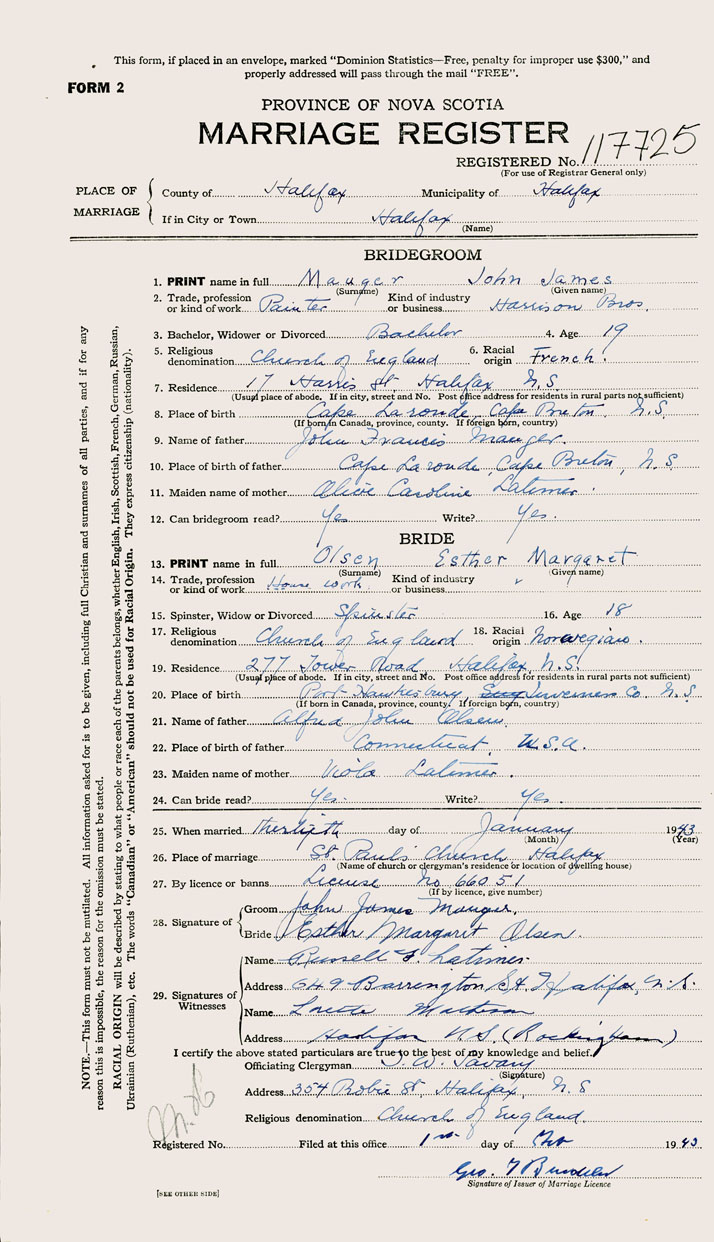 This form, if placed in an envelope, marked "Dominion Statistics—Free, penalty for improper use $300," and
properly addressed will pass through the mail "FREE".
FORM 2
PROVINCE OF NOVA SCOTIA
MARRIAGE REGISTER
REGISTERED No. 117725
(For use of Registrar General only)
PLACE OF MARRIAGE
County of Halifax Municipality of Halifax
If in City or Town Halifax
(Name)
BRIDEGROOM
1. PRINT name in full Mauger John James
(Surname) (Given name)
2. Trade, profession or kind of work Painter Kind of industry or business Harrison Bros.
3. Bachelor, Widower or Divorced Bachelor 4. Age 19
5. Religious denomination Church of England 6. Racial origin French.
7. Residence 17 Harris St Halifax N.S.
(Usual place of abode. If in city, street and No. Post office address for residents in rural parts not sufficient)
8. Place of birth Cape Laronde, Cape Breton N.S.
(If born in Canada, province, county. If foreign born, country)
9. Name of father John Francis Mauger.
10. Place of birth of father Cape Laronde, Cape Breton, N.S.
11. Maiden name of mother Olive Caroline Latimer.
12. Can bridegroom read? Yes Write? Yes.
BRIDE
13. PRINT name in full Olsen Esther Margaret
(Surname) (Given name)
14. Trade, profession or kind of work House work Kind of industry or business
15. Spinster, Widow or Divorced Spinster 16. Age 18
17. Religious denomination Church of England 18. Racial origin Norwegian.
19. Residence 277 Tower Road Halifax, N.S.
(Usual place of abode. If in city, street and No. Post office address for residents in rural parts not sufficient)
20. Place of birth Port Hawkesbury, Inverness Co. N.S.
(If born in Canada, province, county. If foreign born, country)
21. Name of father Alfred John Olsen.
22. Place of birth of father Connecticut, U.S.A.
23. Maiden name of mother Viola Latimer.
24. Can bride read? Yes. Write? Yes.
25. When married Thirtieth day of January 1943
(Month) (Year)
26. Place of marriage St. Paul's Church Halifax
(Name of church or clergyman's residence or location of dwelling house)
27. By licence or banns License No 66051
(If by licence, give number)
28. Signature of
Groom John James Mauger.
Bride Esther Margaret Olsen.
29. Signatures of Witnesses
Name Russell F. Latimer
Address 649 Barrington St. Halifax, N.S.
Name Loretta Matheson
Address Halifax N.S. (Rockingham)
I certify the above stated particulars are true to the best of my knowledge and belief.
Officiating Clergyman T. W. Savary
(Signature)
Address 354 Robie St, Halifax, N.S
Religious denomination Church of England.
Registered No. Filed at this office 1st day of Feb 1943
Geo.
Signature of Issuer of Marriage Licence
[SEE OTHER SIDE]
NOTE.—This form must not be mutilated. All information asked for is to be given, including full Christian and surnames of all parties, and if for any
reason this is impossible, the reason for the omission must be stated.
RACIAL ORIGIN will be described by stating to what people or race each of the parents belongs, whether English, Irish, Scottish, French, German, Russian,
Ukrainian (Ruthenian), etc. The words "Canadian" or "American" should not be used for Racial Origin. They express citizenship (nationality).